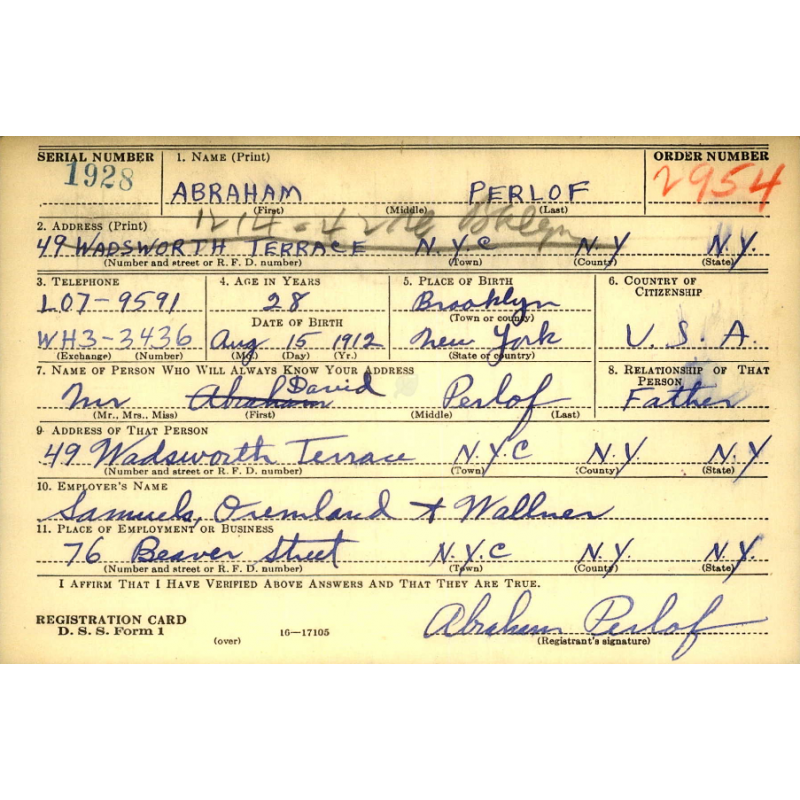 SERIAL NUMBER 1. NAME (Print) ORDER NUMBER
1928 ABRAHAM PERLOF 2954
(First) (Middle) (Last)
2. ADDRESS (Print) 1214 - 42 Bklyn
49 WADSWORTH TERRACE N.Y.C N.Y N.Y.
(Number and street or R. F. D. number) (Town) (County) (State)
3. TELEPHONE 4. AGE IN YEARS 5. PLACE OF BIRTH 6. COUNTRY OF CITIZENSHIP
LO7-9591 28 Brooklyn
DATE OF BIRTH (Town or county)
WH3-3436 Aug 15 1912 New York U.S.A.
(Exchange) (Number) (Mo.) (Day) (Yr.) (State or country)
7. NAME OF PERSON WHO WILL ALWAYS KNOW YOUR ADDRESS 8. RELATIONSHIP OF THAT PERSON
Mr Abraham David Perlof Father
(Mr., Mrs., Miss) (First) (Middle) (Last)
9. ADDRESS OF THAT PERSON
49 Wadsworth Terrace N.Y.C N.Y. N.Y
(Number and street or R. F. D. number) (Town) (County) (State)
10. EMPLOYER'S NAME
Samuels, Oremland + Wallner
11. PLACE OF EMPLOYMENT OR BUSINESS
76 Beaver Street N.Y.C N.Y. N.Y.
(Number and street or R. F. D. number) (Town) (County) (State)
I AFFIRM THAT I HAVE VERIFIED ABOVE ANSWERS AND THAT THEY ARE TRUE.
REGISTRATION CARD
D. S. S. Form 1 (over) 16—17105 Abraham Perlof
(Registrant's signature)